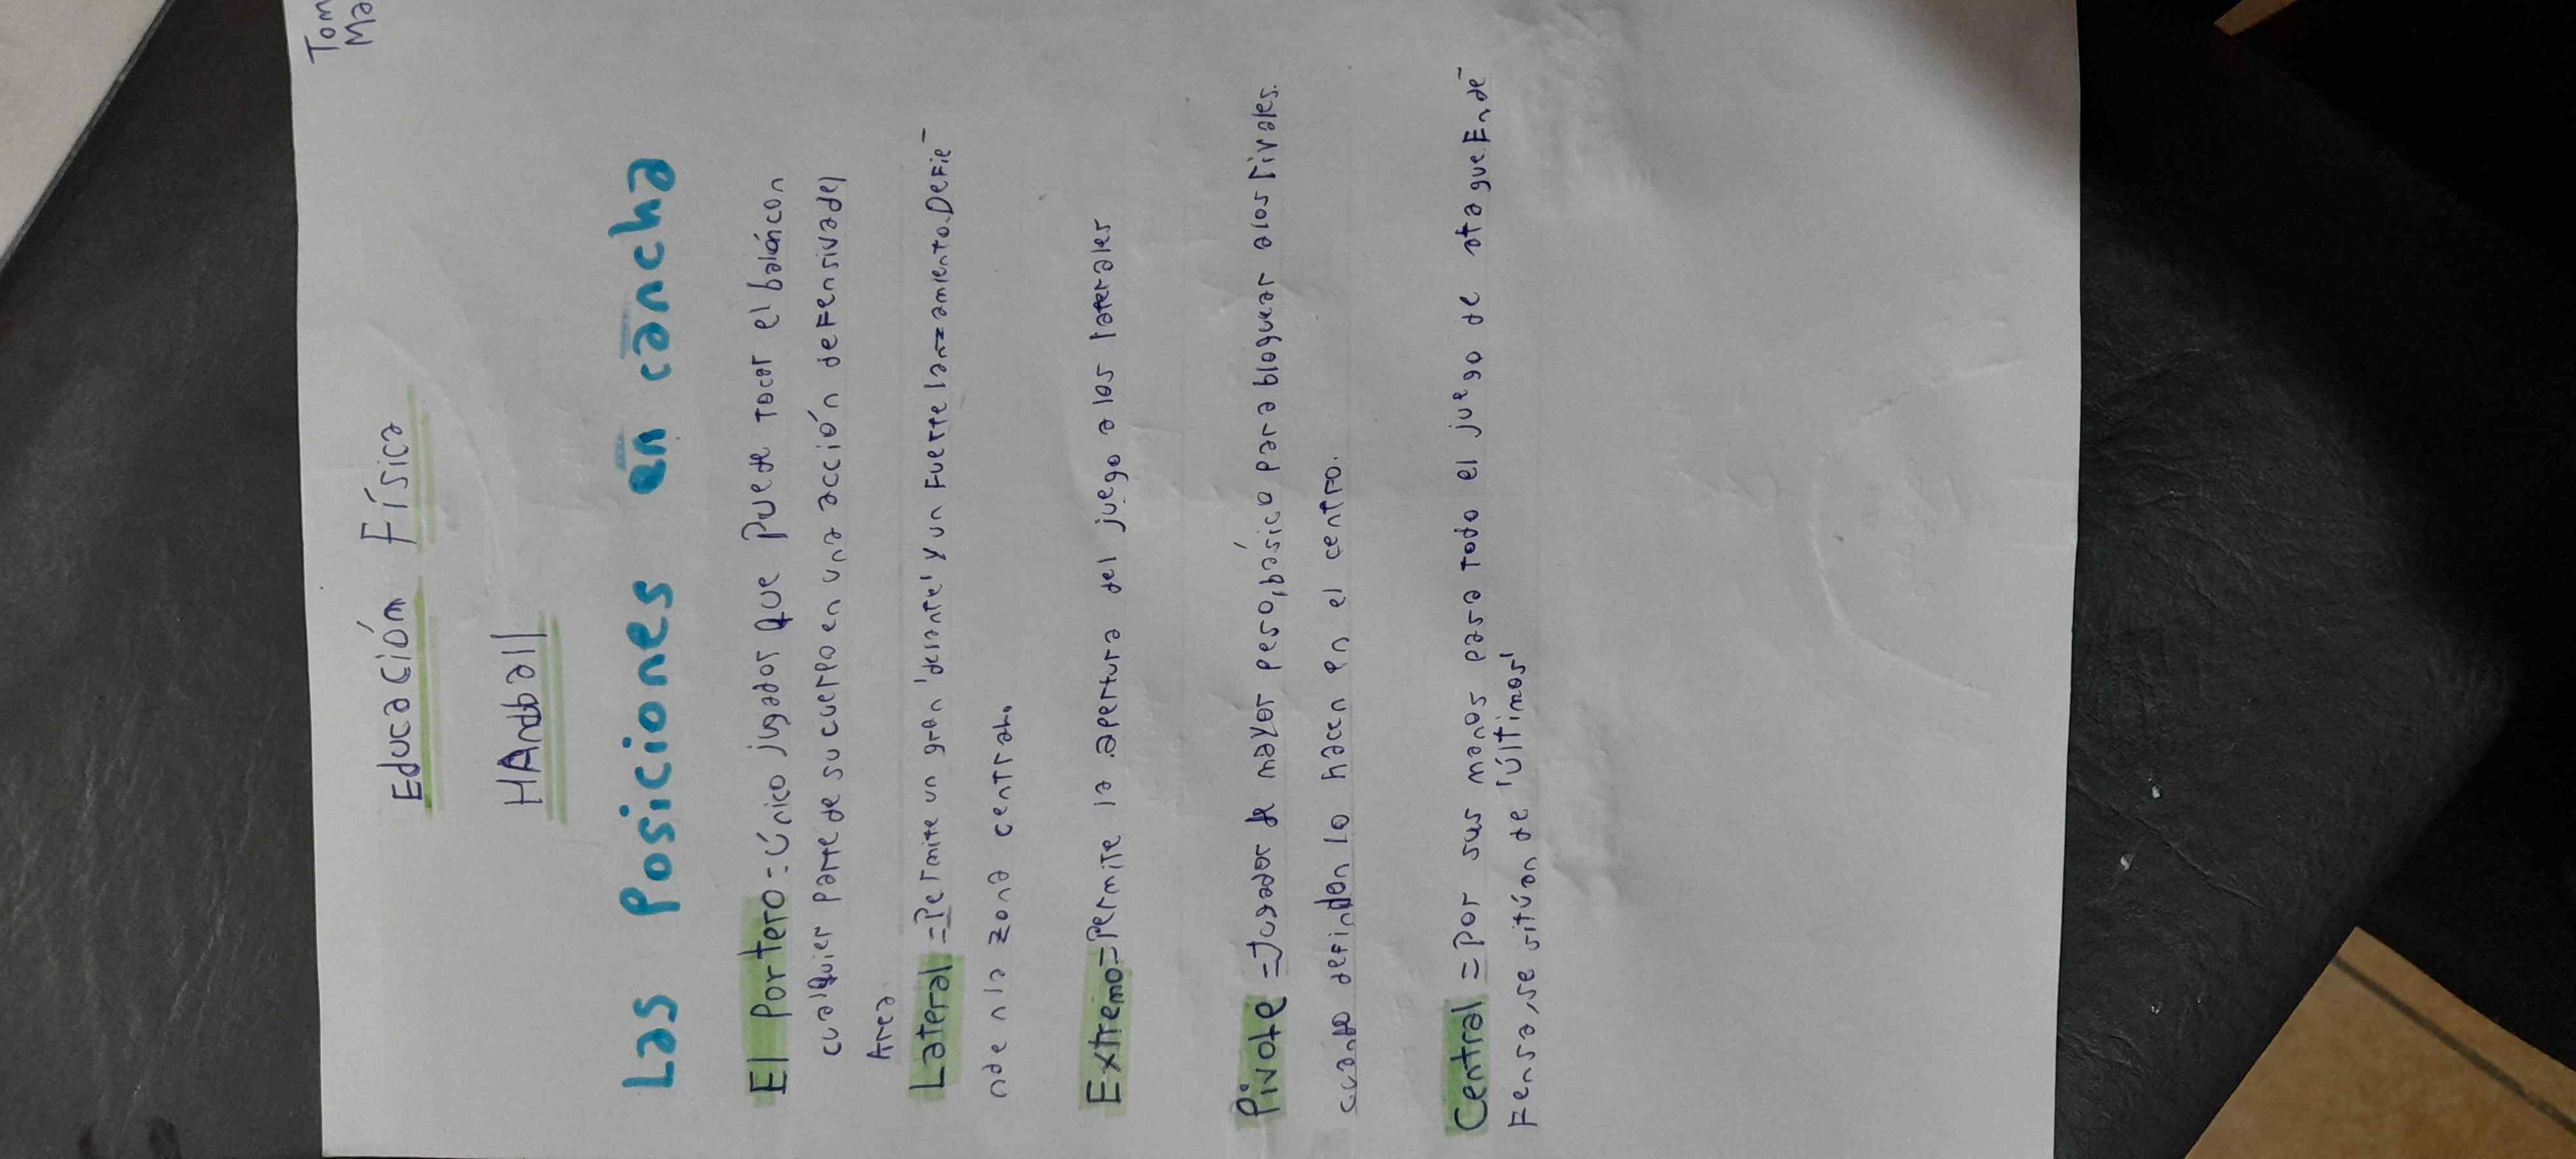 Tom
Me
Educación Física
HAndball
Las Posiciones en cancha
El Portero=Único jugador que Puede Tocar el balón con
cualquier parte de su cuerpo en una acción defensiva del
Area.
Lateral=Permite un gran 'derante' y un Fuerte lanzamiento.Defie-
nde n la zona central.
Extremo=Permite la apertura del juego a los laterales
Pivote=Jugador de mayor peso, básico para bloquear a los rivales.
cuando definden lo hacen en el centro.
Central=Por sus manos pasa todo el juego de ataque En de-
Fensa, se sitúan de 'Últimos'